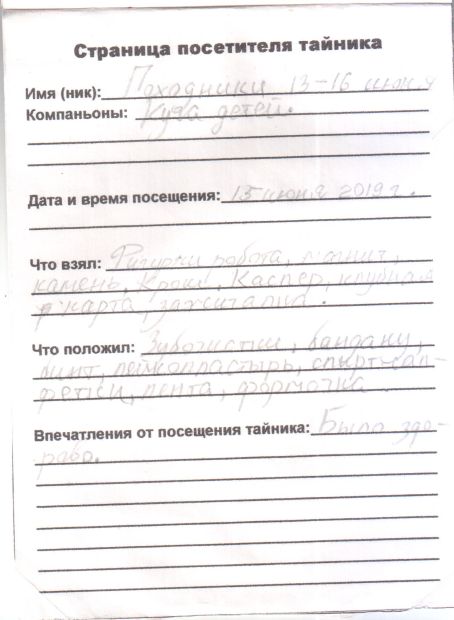 Страница посетителя тайника
Имя (ник): Походники 13-16 июня
Компаньоны: Куча детей.
Дата и время посещения: 15 июня 2019 г.
Что взял: Фигурки робота, магнит,
камень, Крош, Каспер, клубная
карта, зажигалка.
Что положил: Зубочистки, бандану,
бинт, лейкопластырь, спирт-сал-
фетки, лента, формочка
Впечатления от посещения тайника: Было здо-
рово.